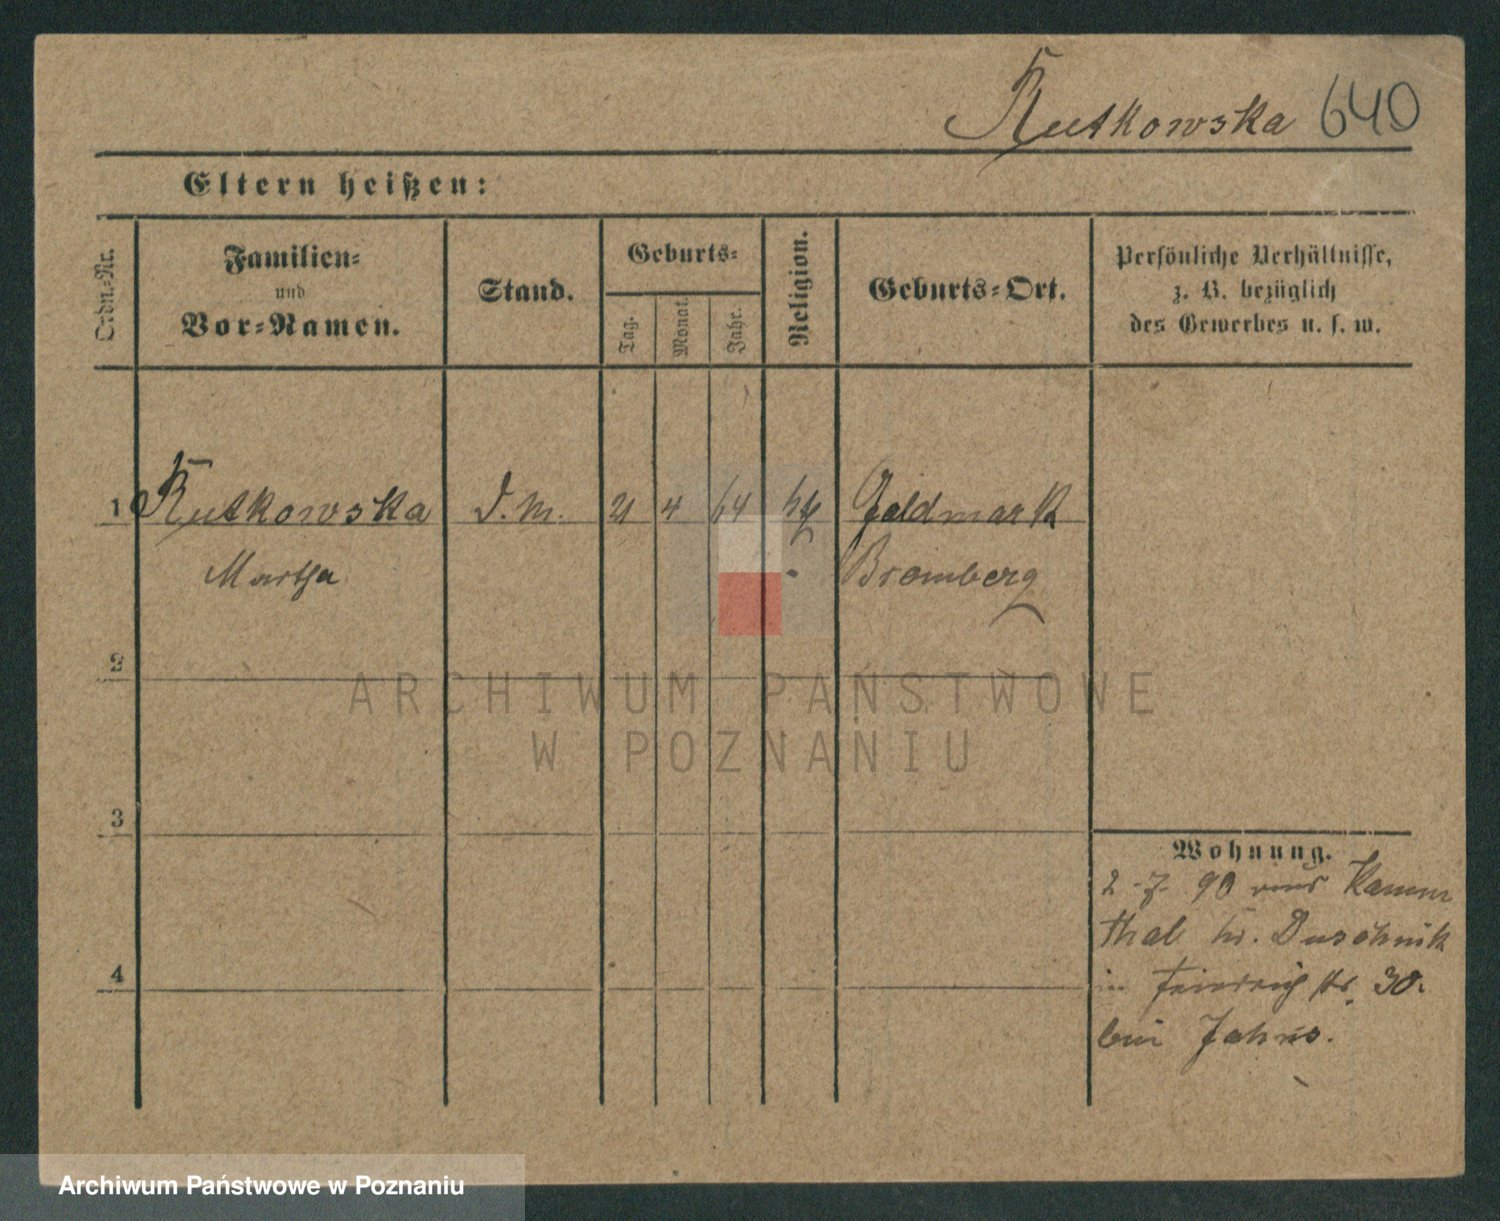 Rutkowska 640
Eltern heißen:
Ordn.-Nr.
Familien-
und
Vor-Namen.
Stand.
Geburts-
Tag.
Monat.
Jahr.
Religion.
Geburts-Ort.
Persönliche Verhältnisse,
z. B. bezüglich
des Gewerbes u. s. w.
1 Rutkowska D. M. 21 4 64 Goldmark
Martha Bromberg
2
3
4
Wohnung.
2-7- 90 aus Kamm
thal Kr. Duschnik
in str. 30.
bei Jahns.
ARCHIWUM PAŃSTWOWE
W POZNANIU
Archiwum Państwowe w Poznaniu